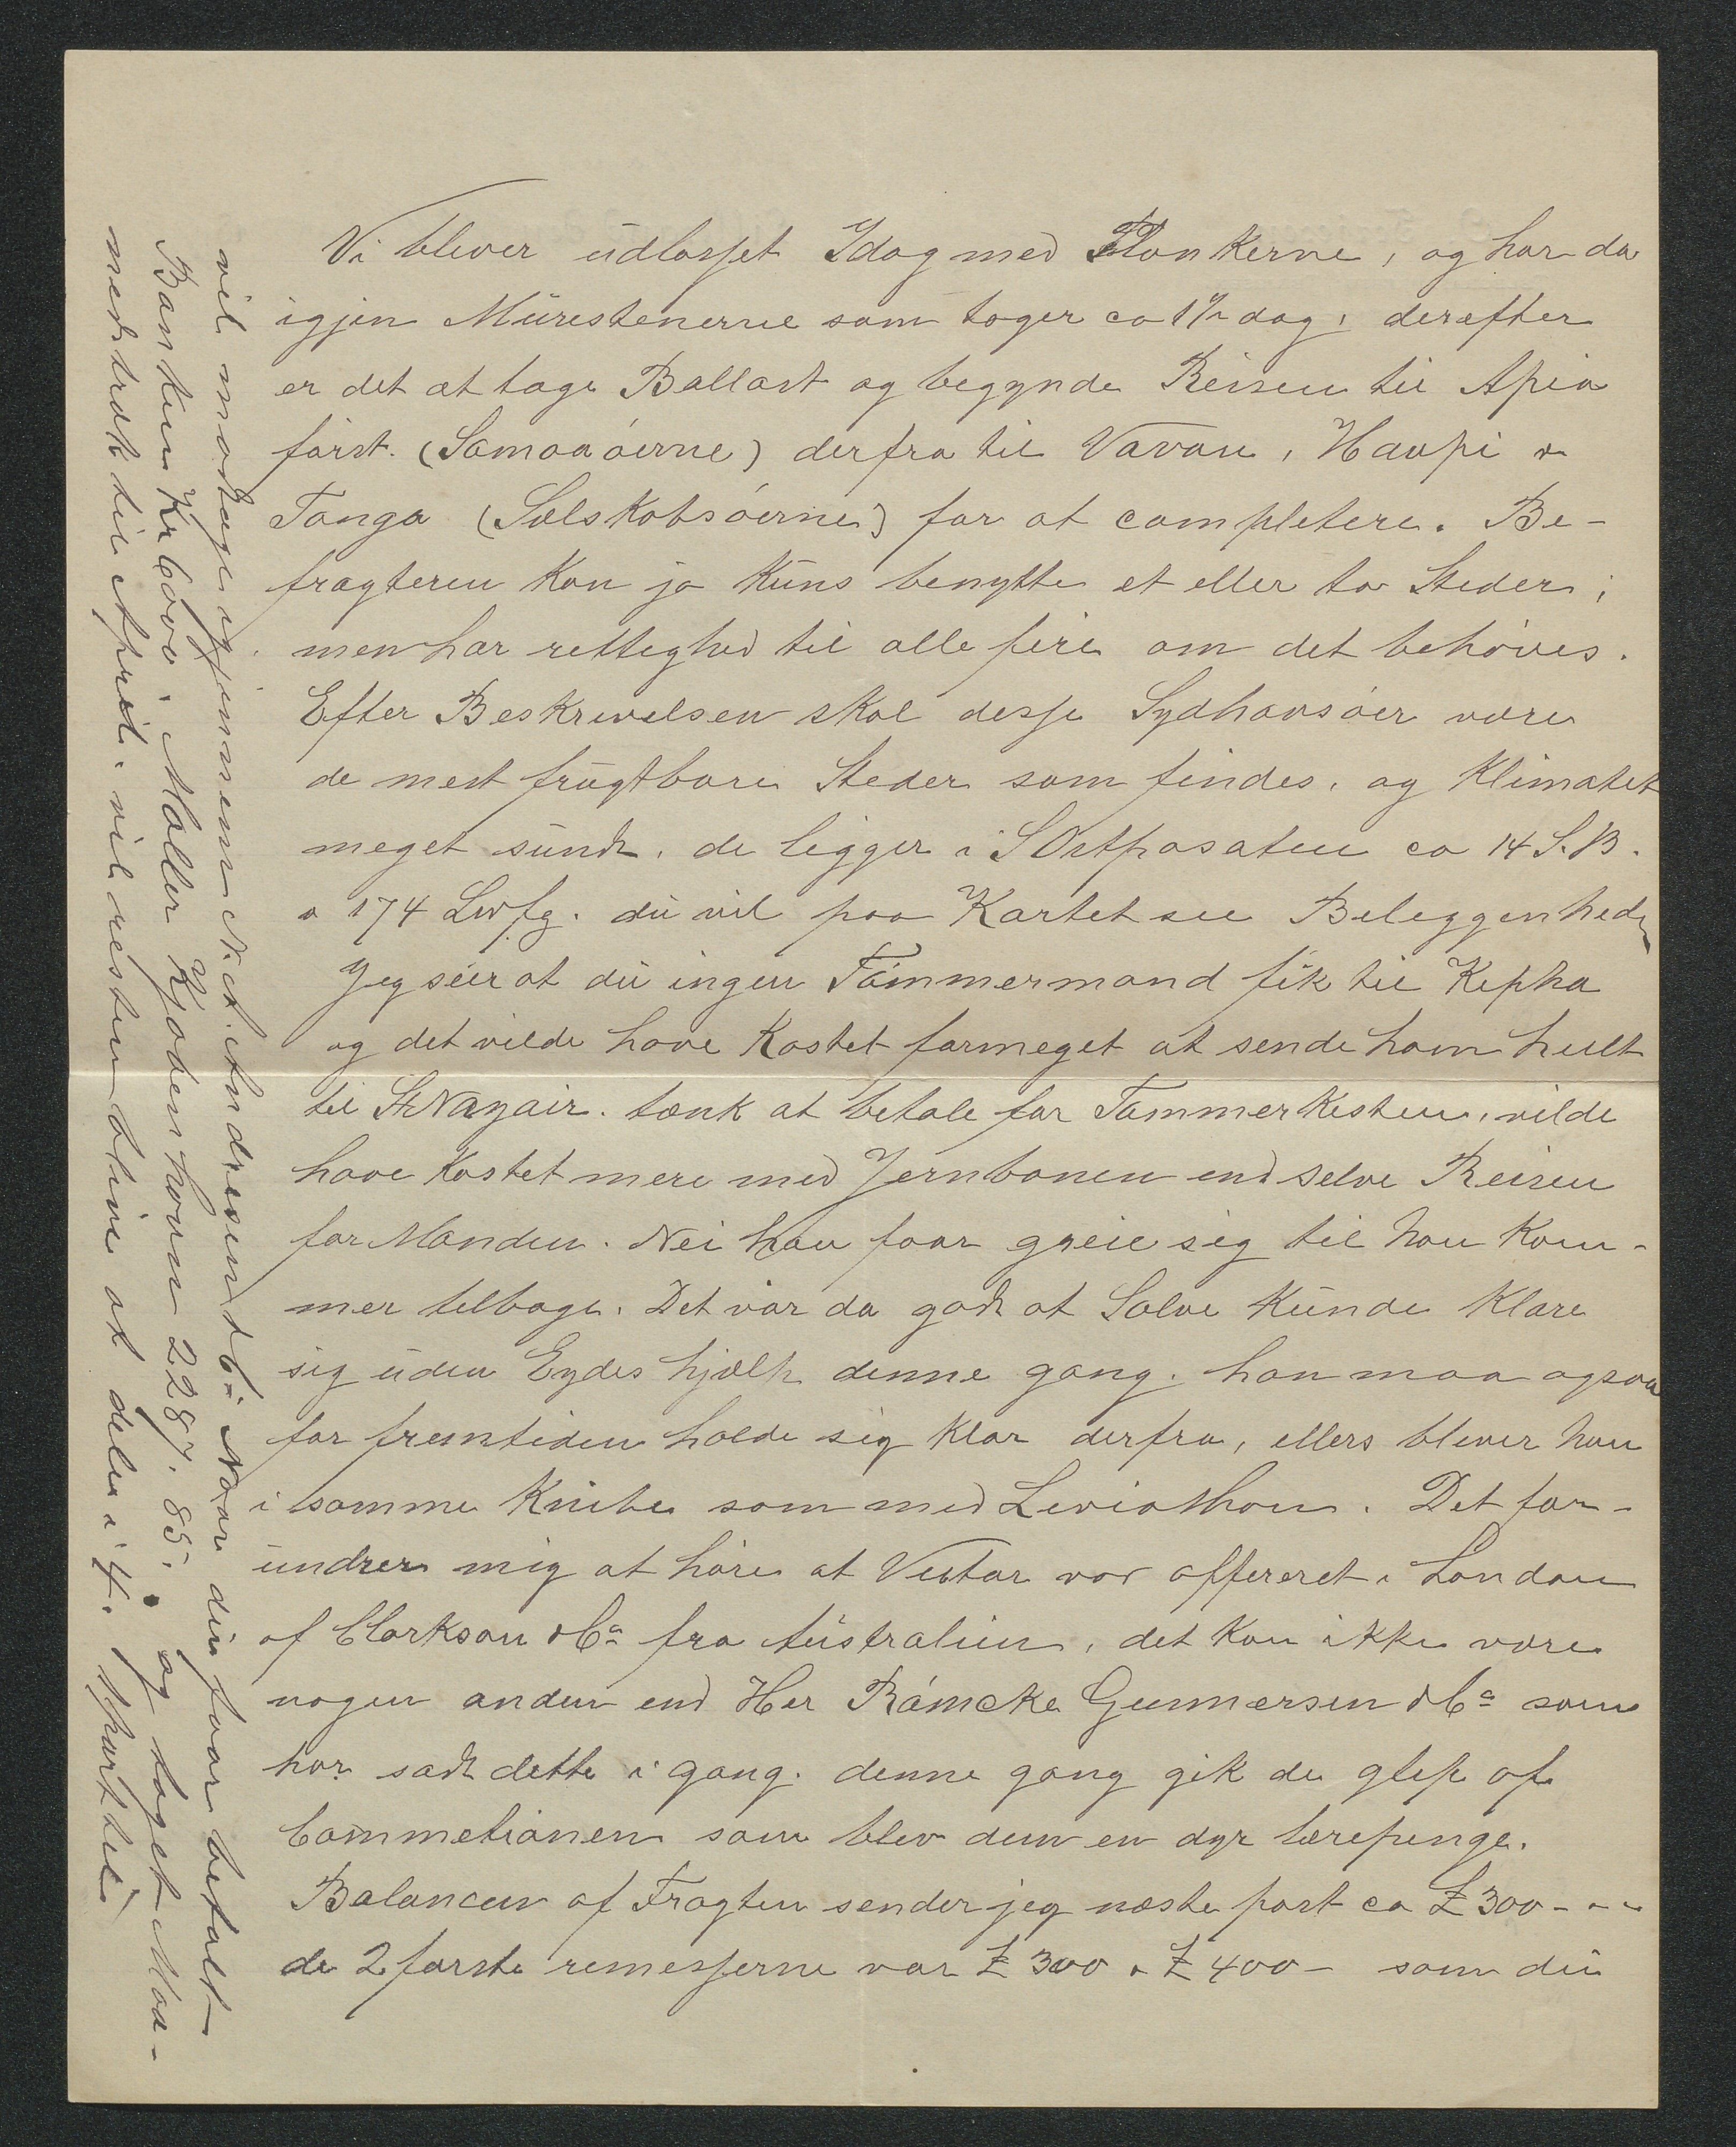 Vi bliver udlosset Idag med Plankerne, og har da
igjen Mürestenerne som tager ca 1½ dag, derefter
er det at tage Ballast og begynde Reisen til Apia
först. (Samoaöerne) derfra til Vavau, Haapi &
Tonga (Selskabsöerne) for at completere. Be-
fragteren kan jo küns benytte et eller to Steder;
men har rettighed til alle fire om det behöves.
Efter Beskrivelsen skal desse Sydhavsöer være
de mest frügtbare Steder som findes, og Klimatet
meget sündt, de ligger i SOstpasaten ca 14 S.B.
& 174 Lvfg. dü vil paa Kartet see Beleggenheden
Jeg seer at dü ingen Tömmermand fik til Kepha
og det vilde have kostet formeget at sende ham heelt
til St Nazair. tænk at betale for Tømmerkisten, vilde
have kostet mere med Jernbanen end selve Reisen
for Manden. Nei han faar greie sig til han kom-
mer tilbage. Det var da godt at Solve künde klare
sig üden Eydes hjælp denne gang. han maa ogsaa
for fremtiden holde sig klar derfra, ellers bliver han
i samme Knibe som med Leviathan. Det for-
ündrer mig at höre at Vestar var offereret i London
af Clarkson & Co fra Aüstralien, det kan ikke være
nogen anden end Her Römcke Gunnersen & Co som
har sadt dette i gang. denne gang gik de glip af
Commetionen som blev dem en dyr lærepenge.
Balancen af Fragten sender jeg næste post ca £ 300 - - -
de 2 förste remesserne var £ 300 & £ 400 - som dü
vil modtage igjennem N.A. Andresen & Co Naar dü faar betalt
Banken Kr 6000, Möller Kjöbenhavn 2287.85. og taget Maa-
nedstræk til April, vil resten blive at dele i 4. Parthei